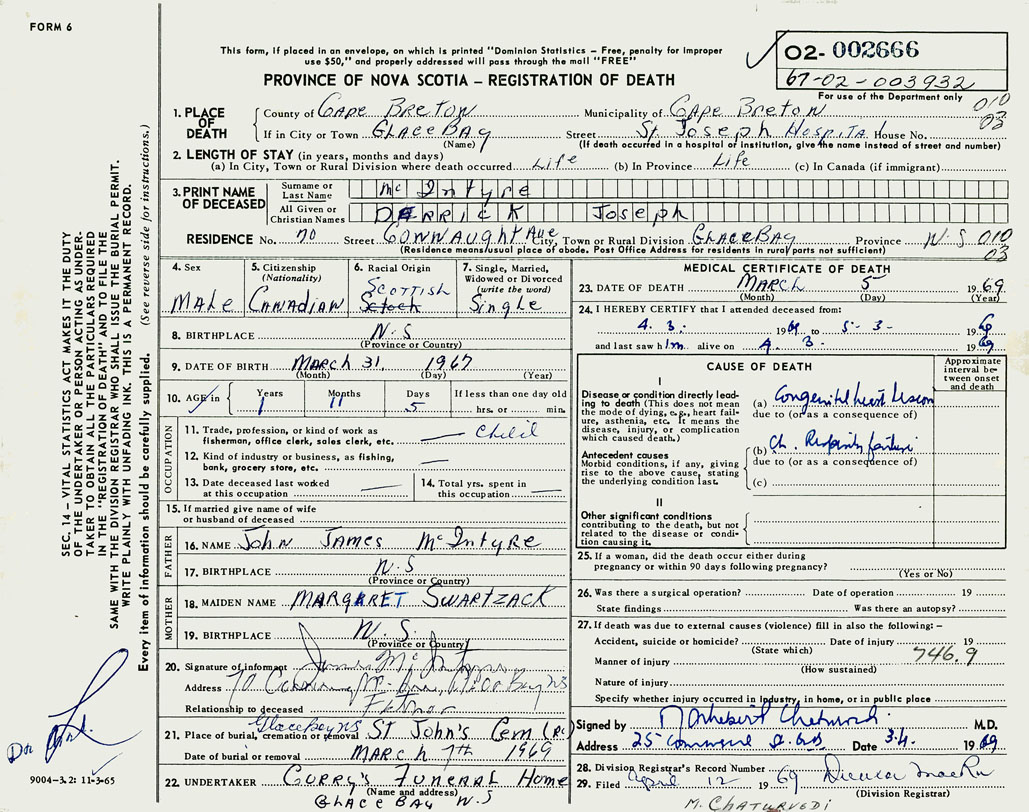 FORM 6
This form, if placed in an envelope, on which is printed "Dominion Statistics – Free, penalty for improper
use $50," and properly addressed will pass through the mail "FREE"
PROVINCE OF NOVA SCOTIA – REGISTRATION OF DEATH
02- 002666
67-02-003932
For use of the Department only
010
03
1. PLACE OF DEATH
County of CAPE BRETON Municipality of CAPE BRETON
If in City or Town GLACE BAY Street St Joseph Hospital House No.
(Name) (If death occurred in a hospital or institution, give the name instead of street and number)
2. LENGTH OF STAY (in years, months and days)
(a) In City, Town or Rural Division where death occurred Life (b) In Province Life (c) In Canada (if immigrant)
3. PRINT NAME OF DECEASED
Surname or Last Name McIntyre
All Given or Christian Names DERRICK Joseph
RESIDENCE No. 70 Street CONNAUGHT Ave City, Town or Rural Division GLACE BAY Province N.S 010
03
(Residence means usual place of abode. Post Office Address for residents in rural parts not sufficient)
4. Sex MALE
5. Citizenship (Nationality) CANADIAN
6. Racial Origin SCOTTISH Scotch
7. Single, Married, Widowed or Divorced (write the word) Single
8. BIRTHPLACE N.S
(Province or Country)
9. DATE OF BIRTH MARCH 31, 1967
(Month) (Day) (Year)
10. AGE in Years 1 Months 11 Days 5 If less than one day old hrs. or min.
OCCUPATION
11. Trade, profession, or kind of work as
fisherman, office clerk, sales clerk, etc. Child
12. Kind of industry or business, as fishing,
bank, grocery store, etc.
13. Date deceased last worked
at this occupation
14. Total yrs. spent in
this occupation
15. If married give name of wife
or husband of deceased
FATHER
16. NAME John JAMES McINTYRE
17. BIRTHPLACE N.S
(Province or Country)
MOTHER
18. MAIDEN NAME MARGARET SWARTZACK
19. BIRTHPLACE N.S.
(Province or Country)
20. Signature of informant James McIntyre
Address 70
Relationship to deceased FATHER
21. Place of burial, cremation or removal Glace Bay NS ST John's Cem (RC)
Date of burial or removal MARCH 7th 1969
22. UNDERTAKER CURRY'S FUNERAL Home
(Name and address)
GLACE BAY N.S
MEDICAL CERTIFICATE OF DEATH
23. DATE OF DEATH MARCH 5 1969
(Month) (Day) (Year)
24. I HEREBY CERTIFY that I attended deceased from:
4. 3. 1969 to 5-3- 1969
and last saw him alive on 4. 3. 1969
CAUSE OF DEATH
Approximate interval between onset and death
I
Disease or condition directly leading to death (This does not mean the mode of dying, e.g., heart failure, asthenia, etc. It means the disease, injury, or complication which caused death.)
(a) Congenital heart lesion
due to (or as a consequence of)
Antecedent causes
Morbid conditions, if any, giving rise to the above cause, stating the underlying condition last.
(b) Ch. Respiratory failure
due to (or as a consequence of)
(c)
II
Other significant conditions
contributing to the death, but not related to the disease or condition causing it.
25. If a woman, did the death occur either during
pregnancy or within 90 days following pregnancy?
(Yes or No)
26. Was there a surgical operation? Date of operation 19
State findings Was there an autopsy?
27. If death was due to external causes (violence) fill in also the following: –
Accident, suicide or homicide? Date of injury 19
(State which) 746.9
Manner of injury
(How sustained)
Nature of injury
Specify whether injury occurred in Industry, in home, or in public place
Signed by M.D.
Address 25 Commercial St. Date 3.4. 1969
28. Division Registrar's Record Number
29. Filed April 12 1969
(Division Registrar)
M. CHATURVEDI
SEC. 14 – VITAL STATISTICS ACT MAKES IT THE DUTY
OF THE UNDERTAKER OR PERSON ACTING AS UNDER-
TAKER TO OBTAIN ALL THE PARTICULARS REQUIRED
IN THE "REGISTRATION OF DEATH" AND TO FILE THE
SAME WITH THE DIVISION REGISTRAR WHO SHALL ISSUE THE BURIAL PERMIT.
WRITE PLAINLY WITH UNFADING INK. THIS IS A PERMANENT RECORD.
Every item of information should be carefully supplied. (See reverse side for instructions.)
9004-3.2: 11-3-65